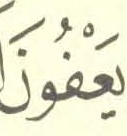 يَعْفُونَ